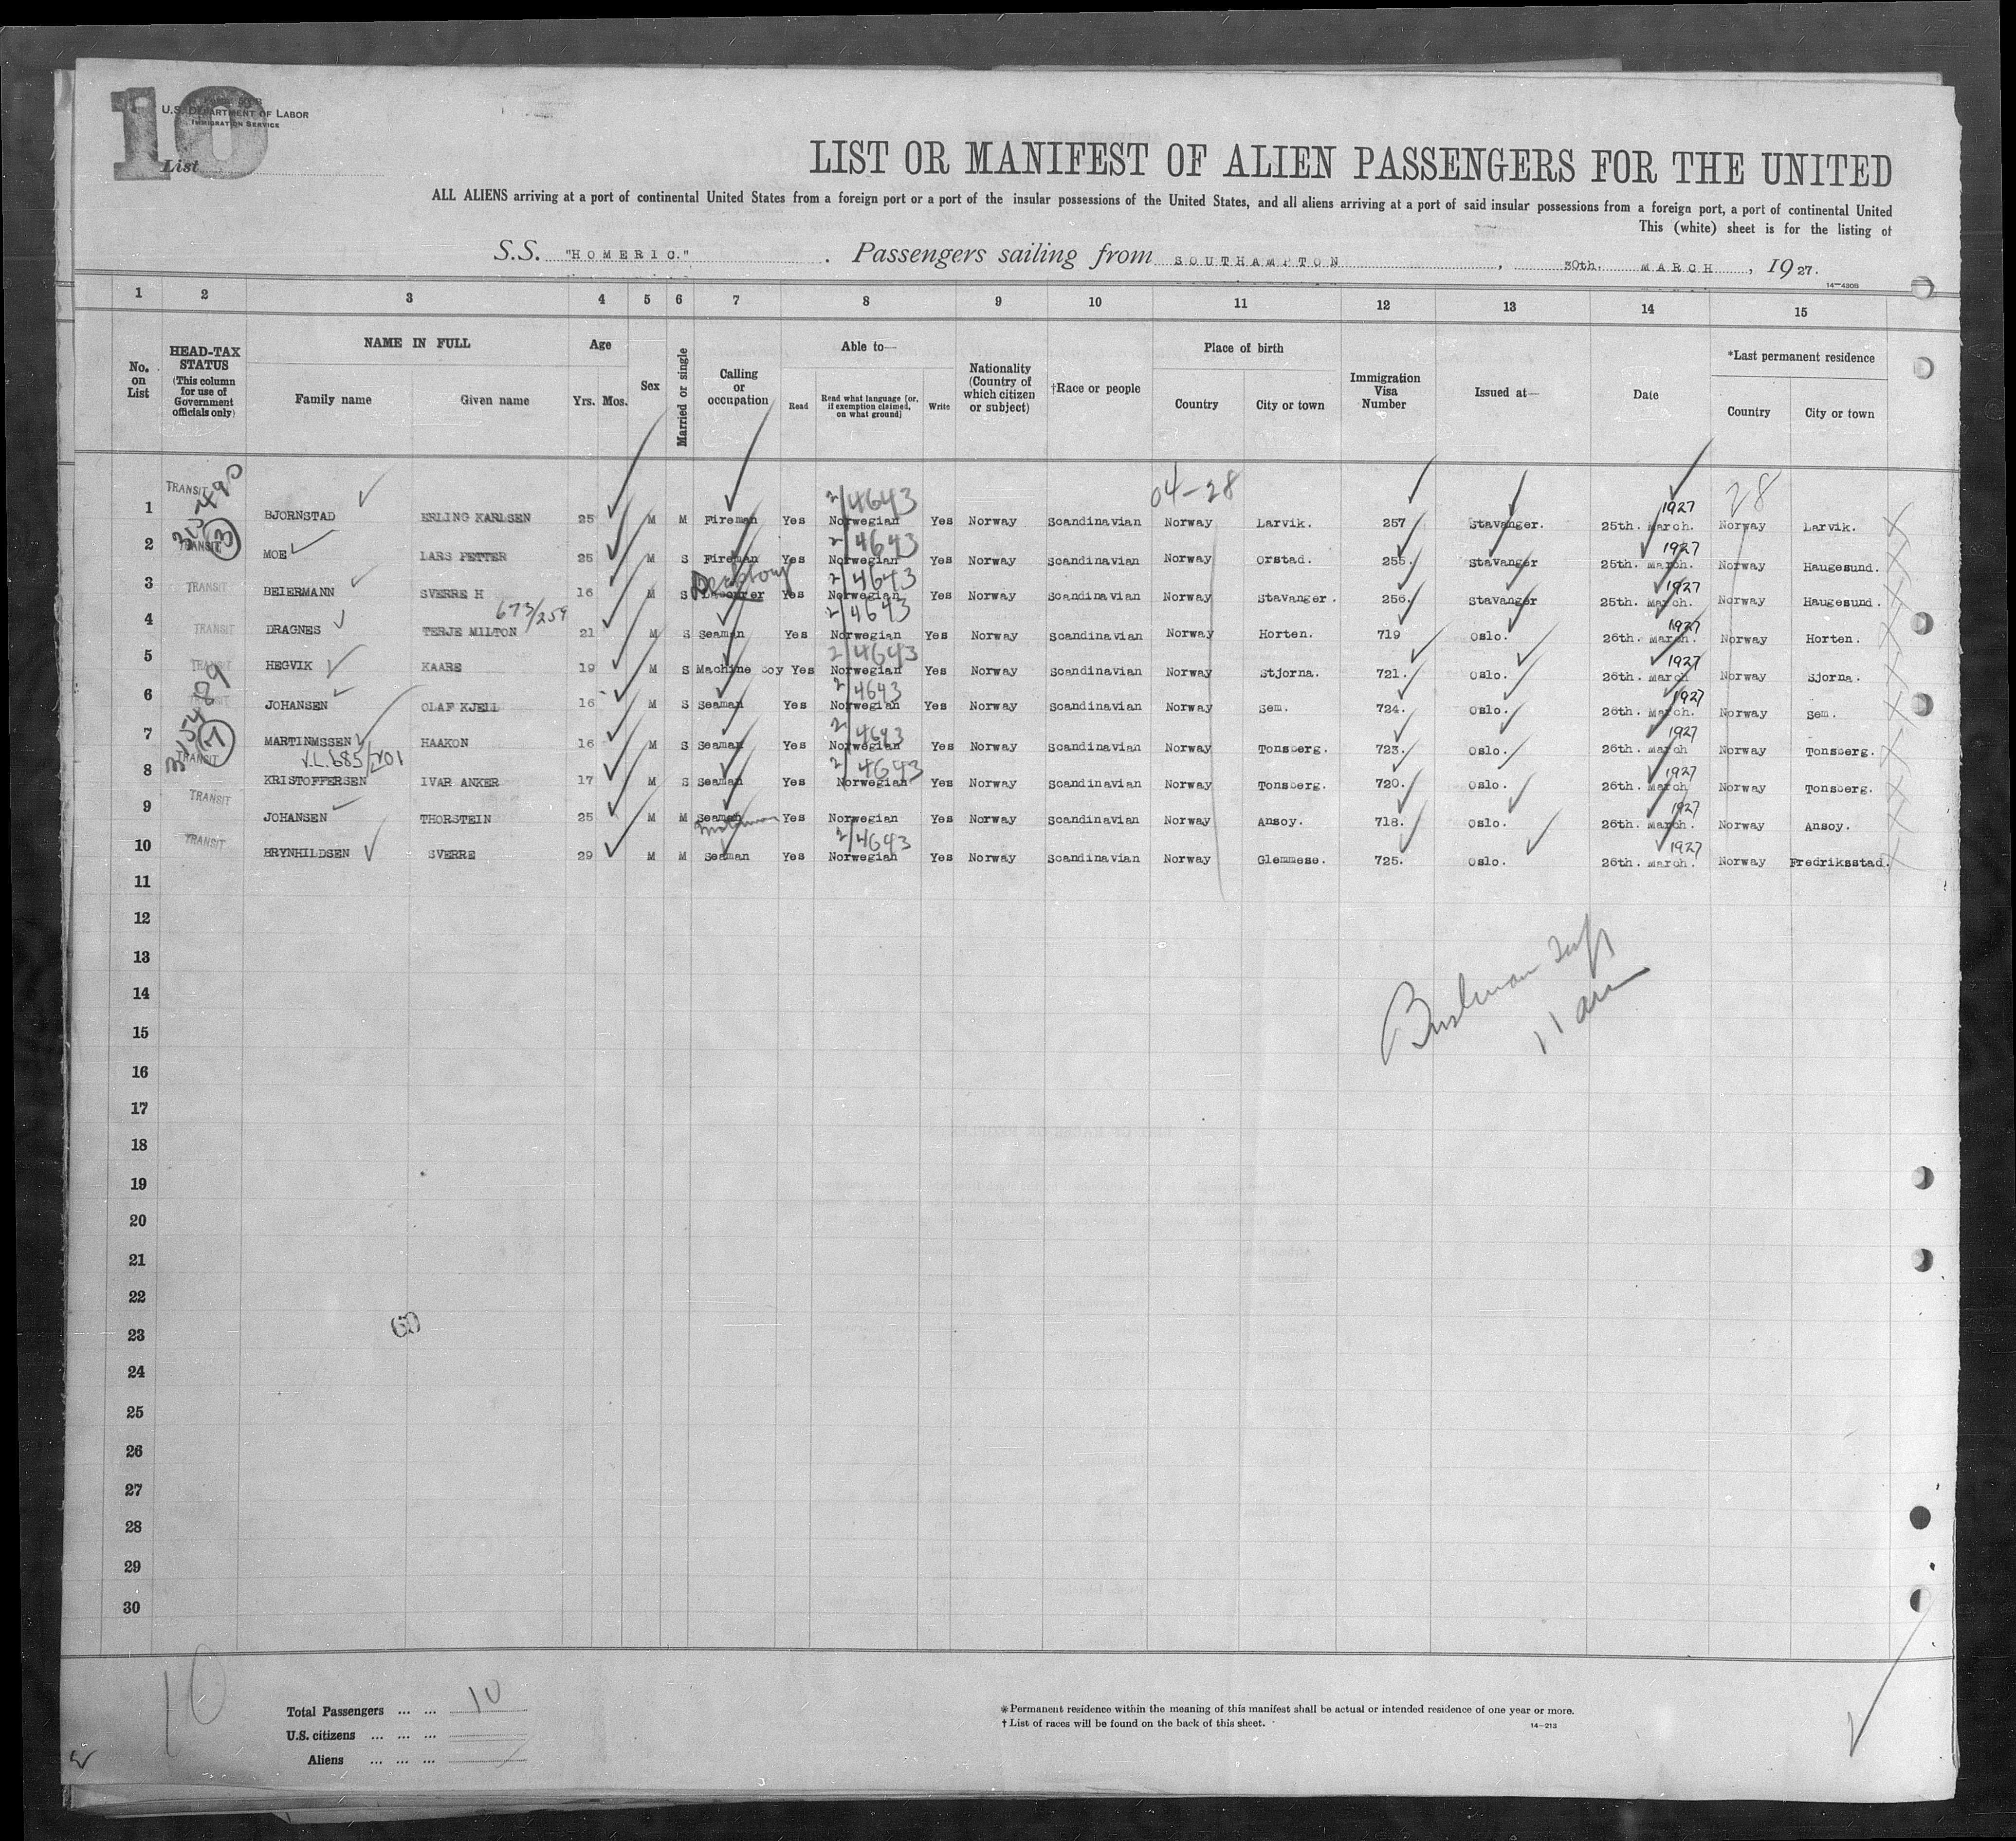 10
U.S. DEPARTMENT OF LABOR
IMMIGRATION SERVICE
List
LIST OR MANIFEST OF ALIEN PASSENGERS FOR THE UNITED
ALL ALIENS arriving at a port of continental United States from a foreign port or a port of the insular possessions of the United States, and all aliens arriving at a port of said insular possessions from a foreign port, a port of continental United
This (white) sheet is for the listing of
S.S. "HOMERIC." Passengers sailing from SOUTHAMPTON, 30th. MARCH, 1927.
14-4308
1 2 3 4 5 6 7 8 9 10 11 12 13 14 15
No. on List
HEAD-TAX STATUS (This column for use of Government officials only)
NAME IN FULL
Family name Given name
Age
Yrs. Mos.
Sex
Married or single
Calling or occupation
Able to—
Read
Read what language [or, if exemption claimed, on what ground]
Write
Nationality (Country of which citizen or subject)
†Race or people
Place of birth
Country City or town
Immigration Visa Number
Issued at—
Date
*Last permanent residence
Country City or town
04-28 28
1 TRANSIT BJORNSTAD ERLING KARLSEN 25 M M Fireman Yes 2/4643 Norwegian Yes Norway Scandinavian Norway Larvik. 257 Stavanger. 25th. March. 1927 Norway Larvik.
2 TRANSIT 3 MOE LARS PETTER 25 M S Fireman Yes 2/4643 Norwegian Yes Norway Scandinavian Norway Orstad. 255. Stavanger 25th. March. 1927 Norway Haugesund.
3 TRANSIT BEIERMANN SVERRE H 16 M S Yes 2/4643 Norwegian Yes Norway Scandinavian Norway Stavanger. 256. Stavanger 25th. March. 1927 Norway Haugesund.
673/259
4 TRANSIT DRAGNES TERJE MILTON 21 M S Seaman Yes 2/4643 Norwegian Yes Norway Scandinavian Norway Horten. 719 Oslo. 26th. March. 1927 Norway Horten.
5 TRANSIT HEGVIK KAARE 19 M S Machine boy Yes 2/4643 Norwegian Yes Norway Scandinavian Norway Stjorna. 721. Oslo. 26th. March 1927 Norway Sjorna.
6 TRANSIT JOHANSEN OLAF KJELL 16 M S Seaman Yes 2/4643 Norwegian Yes Norway Scandinavian Norway Sem. 724. Oslo. 26th. March. 1927 Norway Sem.
7 7 MARTINMSSEN HAAKON 16 M S Seaman Yes 2/4643 Norwegian Yes Norway Scandinavian Norway Tonsberg. 723. Oslo. 26th. March 1927 Norway Tonsberg.
8 TRANSIT KRISTOFFERSEN IVAR ANKER 17 M S Seaman Yes 2/4643 Norwegian Yes Norway Scandinavian Norway Tonsberg. 720. Oslo. 26th. March 1927 Norway Tonsberg.
9 TRANSIT JOHANSEN THORSTEIN 25 M M Seaman Yes Norwegian Yes Norway Scandinavian Norway Ansoy. 718. Oslo. 26th. March. 1927 Norway Ansoy.
10 TRANSIT BRYNHILDSEN SVERRE 29 M M Seaman Yes 2/4643 Norwegian Yes Norway Scandinavian Norway Glemmese. 725. Oslo. 26th. March. 1927 Norway Fredriksstad.
11
12
13
14
15
11 am
16
17
18
19
20
21
22
23
24
25
26
27
28
29
30
10
Total Passengers ... ... 10
U.S. citizens ... ... ...
Aliens ... ... ...
*Permanent residence within the meaning of this manifest shall be actual or intended residence of one year or more.
†List of races will be found on the back of this sheet.
14-213